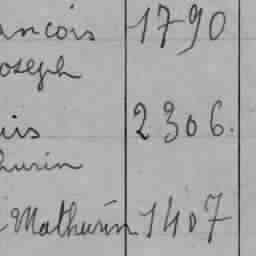 ancois 1790
oseph
uis 2306.
hurin
Mathurin 1407